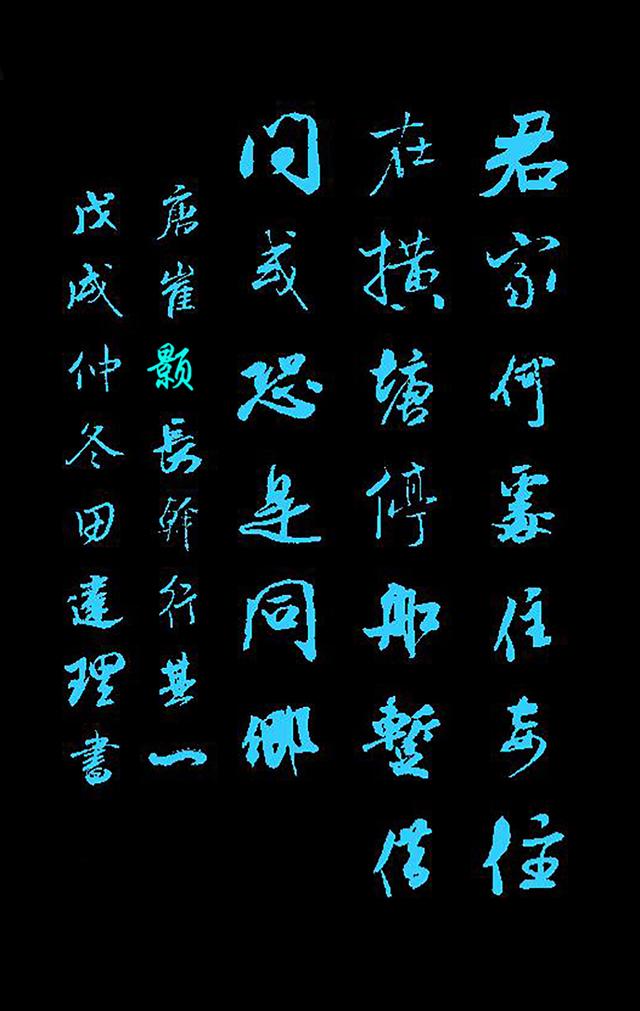 君家何處住妾住
在橫塘停船暫借
問或恐是同鄉
唐崔颢長幹行其一
戊戌仲冬田達理書